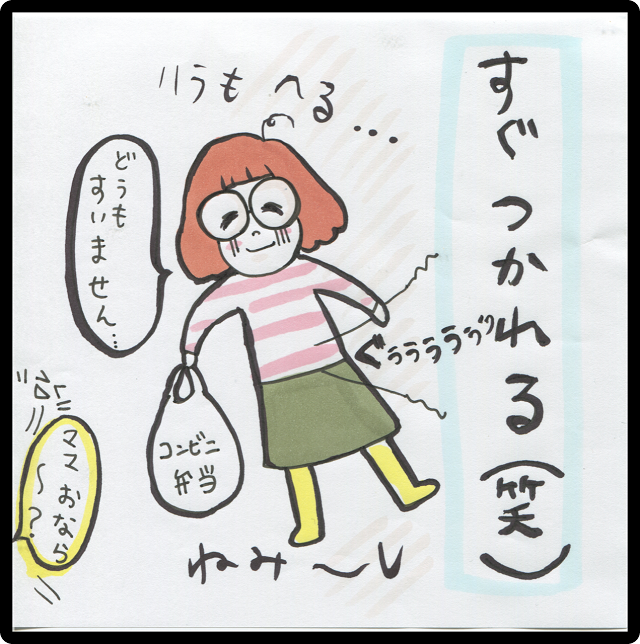 すぐ つかれる(笑)
ハラも へる…
どうも
すいません…
ぐぅぅぅぅぅぅ
コンビニ
弁当
ママ おなら
〜?
ねみ〜い